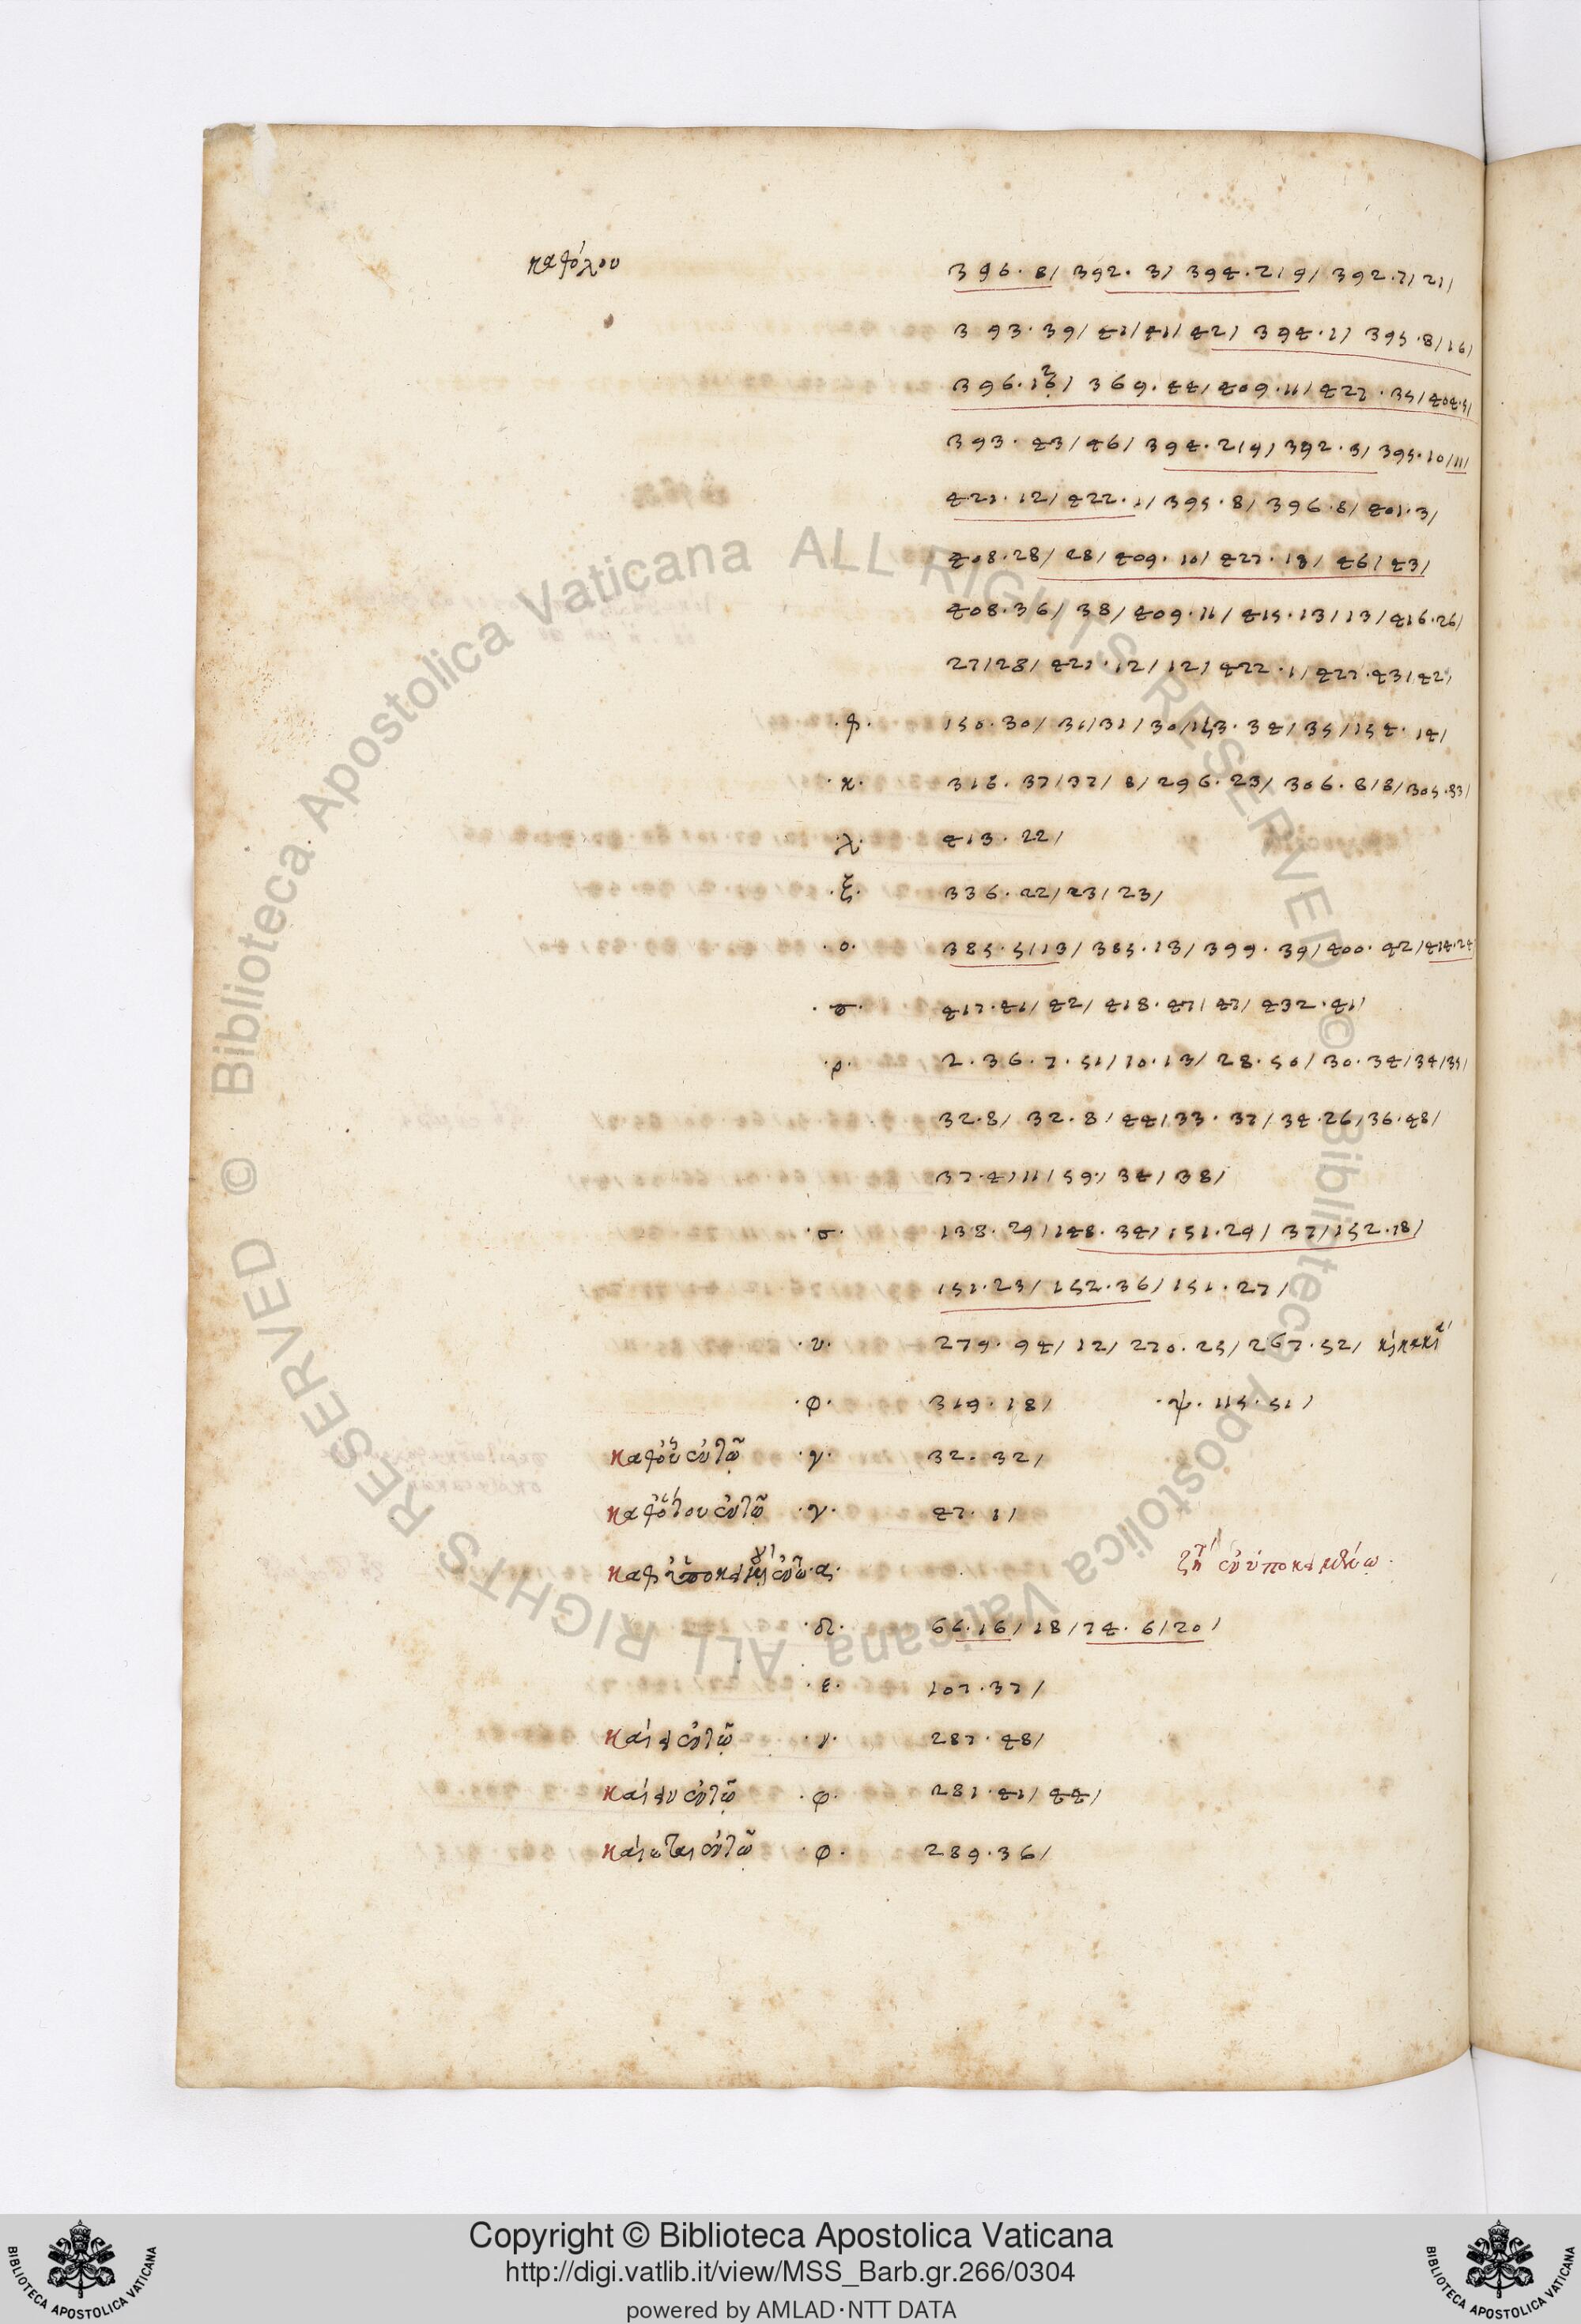 καθόλου 396.8/ 392.3/ 394.2/9/ 392.7/21/
393.39/41/41/42/ 394.1/ 395.8/16/
396.16/ 369.44/409.11/427.35/404.5/
393.43/46/ 394.2/9/ 392.3/ 395.10/11/
421.12/422.1/395.8/396.8/401.3/
408.28/28/409.10/427.18/46/43/
408.36/38/409.11/415.13/13/416.26/
27/28/421.12/12/422.1/427.43/42/
.θ. 150.30/31/31/30/153.34/35/154.14/
.κ. 316.37/37/8/296.23/306.8/8/305.33/
.λ. 413.22/
.ξ. 336.22/23/23/
.ο. 385.5/13/385.13/399.39/400.42/414.24
417.41/42/418.47/47/432.41/
.ρ. 2.36.7.51/10.13/28.50/30.34/34/35/
32.8/ 32.8/44/33.37/34.26/36.48/
37.4/11/59/34/38/
.σ. 138.29/148.34/151.29/37/152.18/
151.23/152.36/151.27/
.υ. 279.94/12/270.25/267.52/
.φ. 319.18/ .ψ. 115.51/
καθὸ ἐν τῷ .γ. 32.32/
καθότου ἐν τῷ .γ. 47.1/
ζητ ἐν ὑποκειμένω.
.δ. 66.16/18/74.6/20/
.ε. 107.37/
.γ. 287.48/
.φ. 281.41/44/
.φ. 289.36/
Copyright © Biblioteca Apostolica Vaticana
http://digi.vatlib.it/view/MSS_Barb.gr.266/0304
powered by AMLAD·NTT DATA